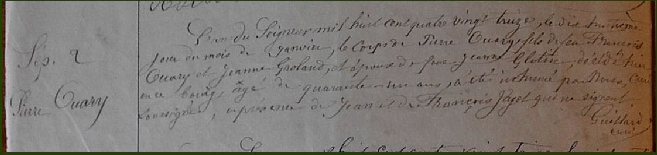 Sép. 2
Pierre Ouary
L'an du Seigneur mil huit cent quatre vingt treize, le dix huitième
jour du mois de Janvier, le Corps de Pierre Ouary, fils de feu François
Ouary et Jeanne Groland, et époux de feue Jeanne décédé hier
en ce bourg, âgé de quarante un ans, a été inhumé par Nous, Curé
soussigné, en présence de Jean et de François Jagot qui ne signent
Guettard
curé